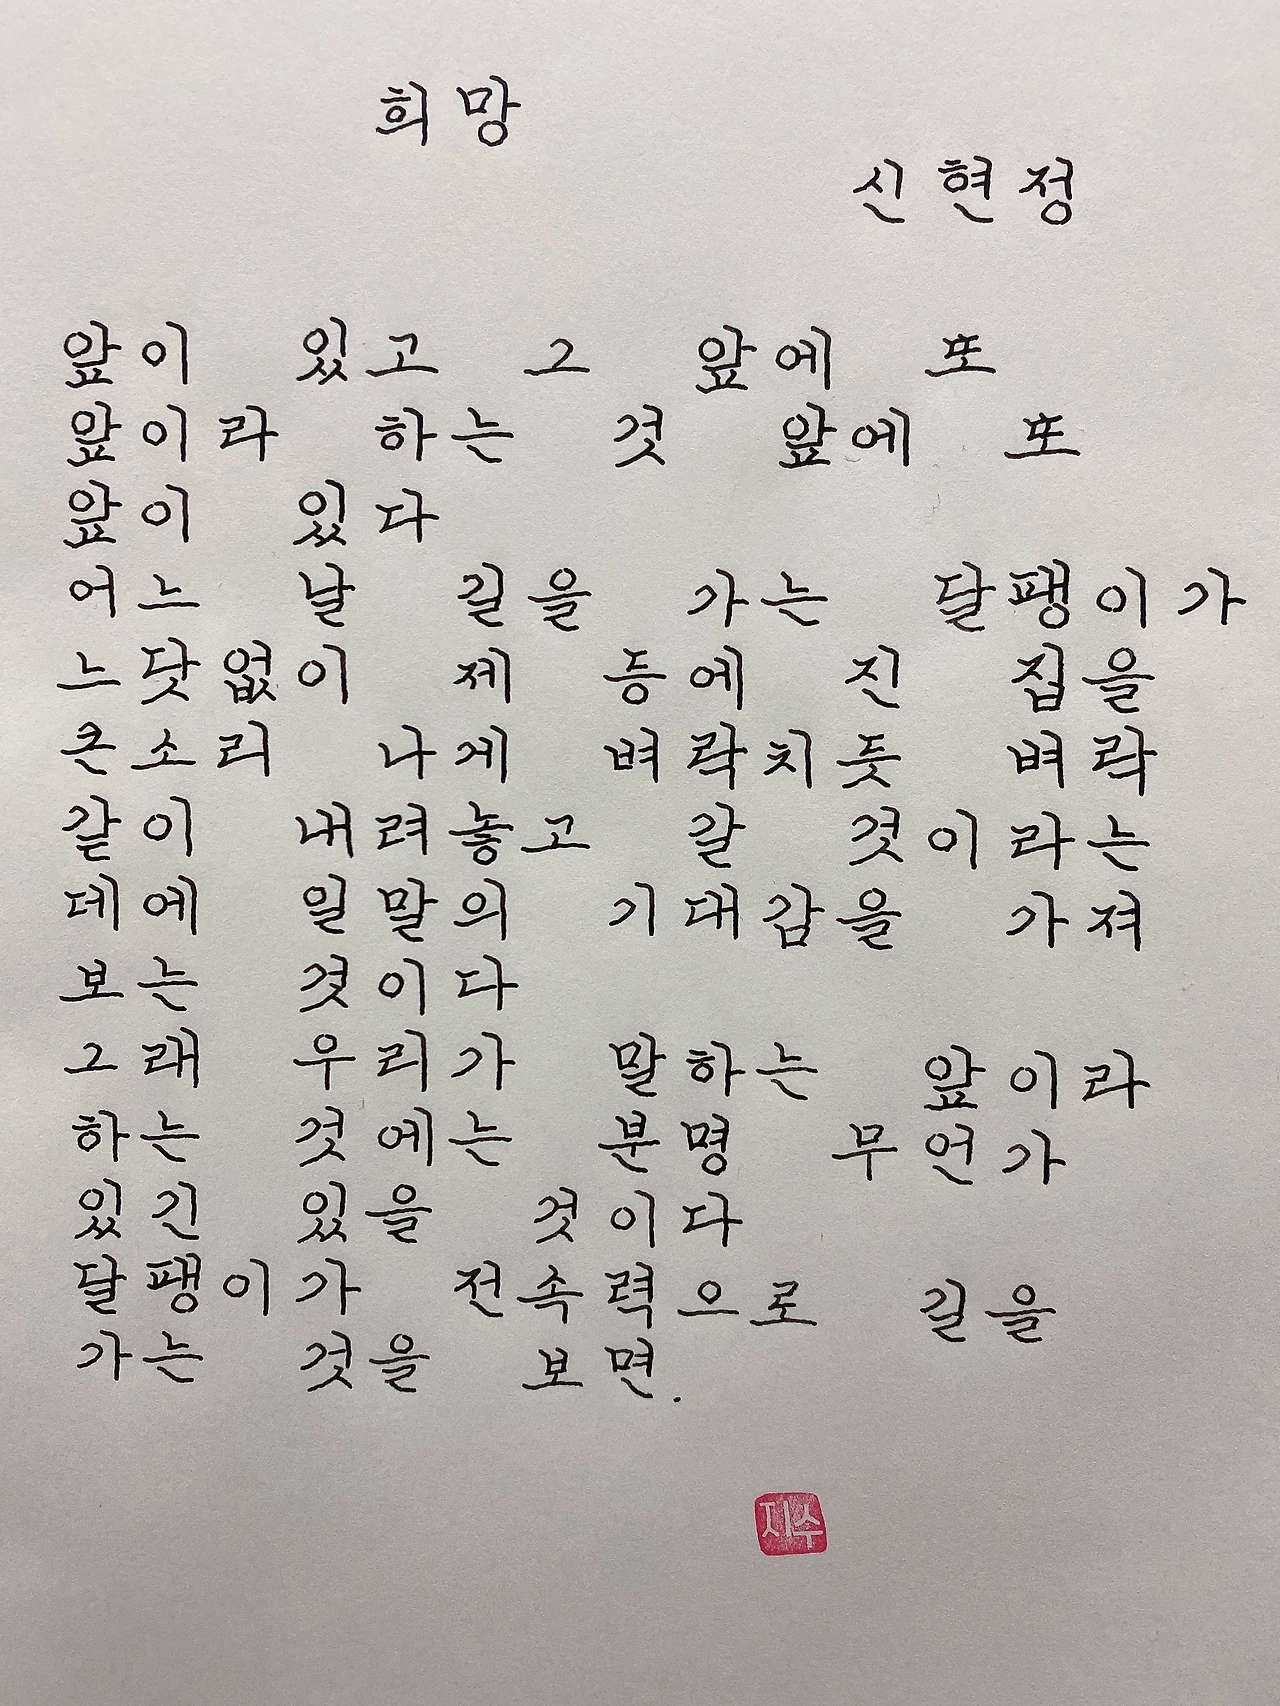 희망
신현정
앞이 있고 그 앞에 또
앞이라 하는 것 앞에 또
앞이 있다
어느 날 길을 가는 달팽이가
느닷없이 제 등에 진 집을
큰소리 나게 벼락치듯 벼락
같이 내려놓고 갈 것이라는
데에 일말의 기대감을 가져
보는 것이다
그래 우리가 말하는 앞이라
하는 것에는 분명 무언가
있긴 있을 것이다
달팽이가 전속력으로 길을
가는 것을 보면.
지수